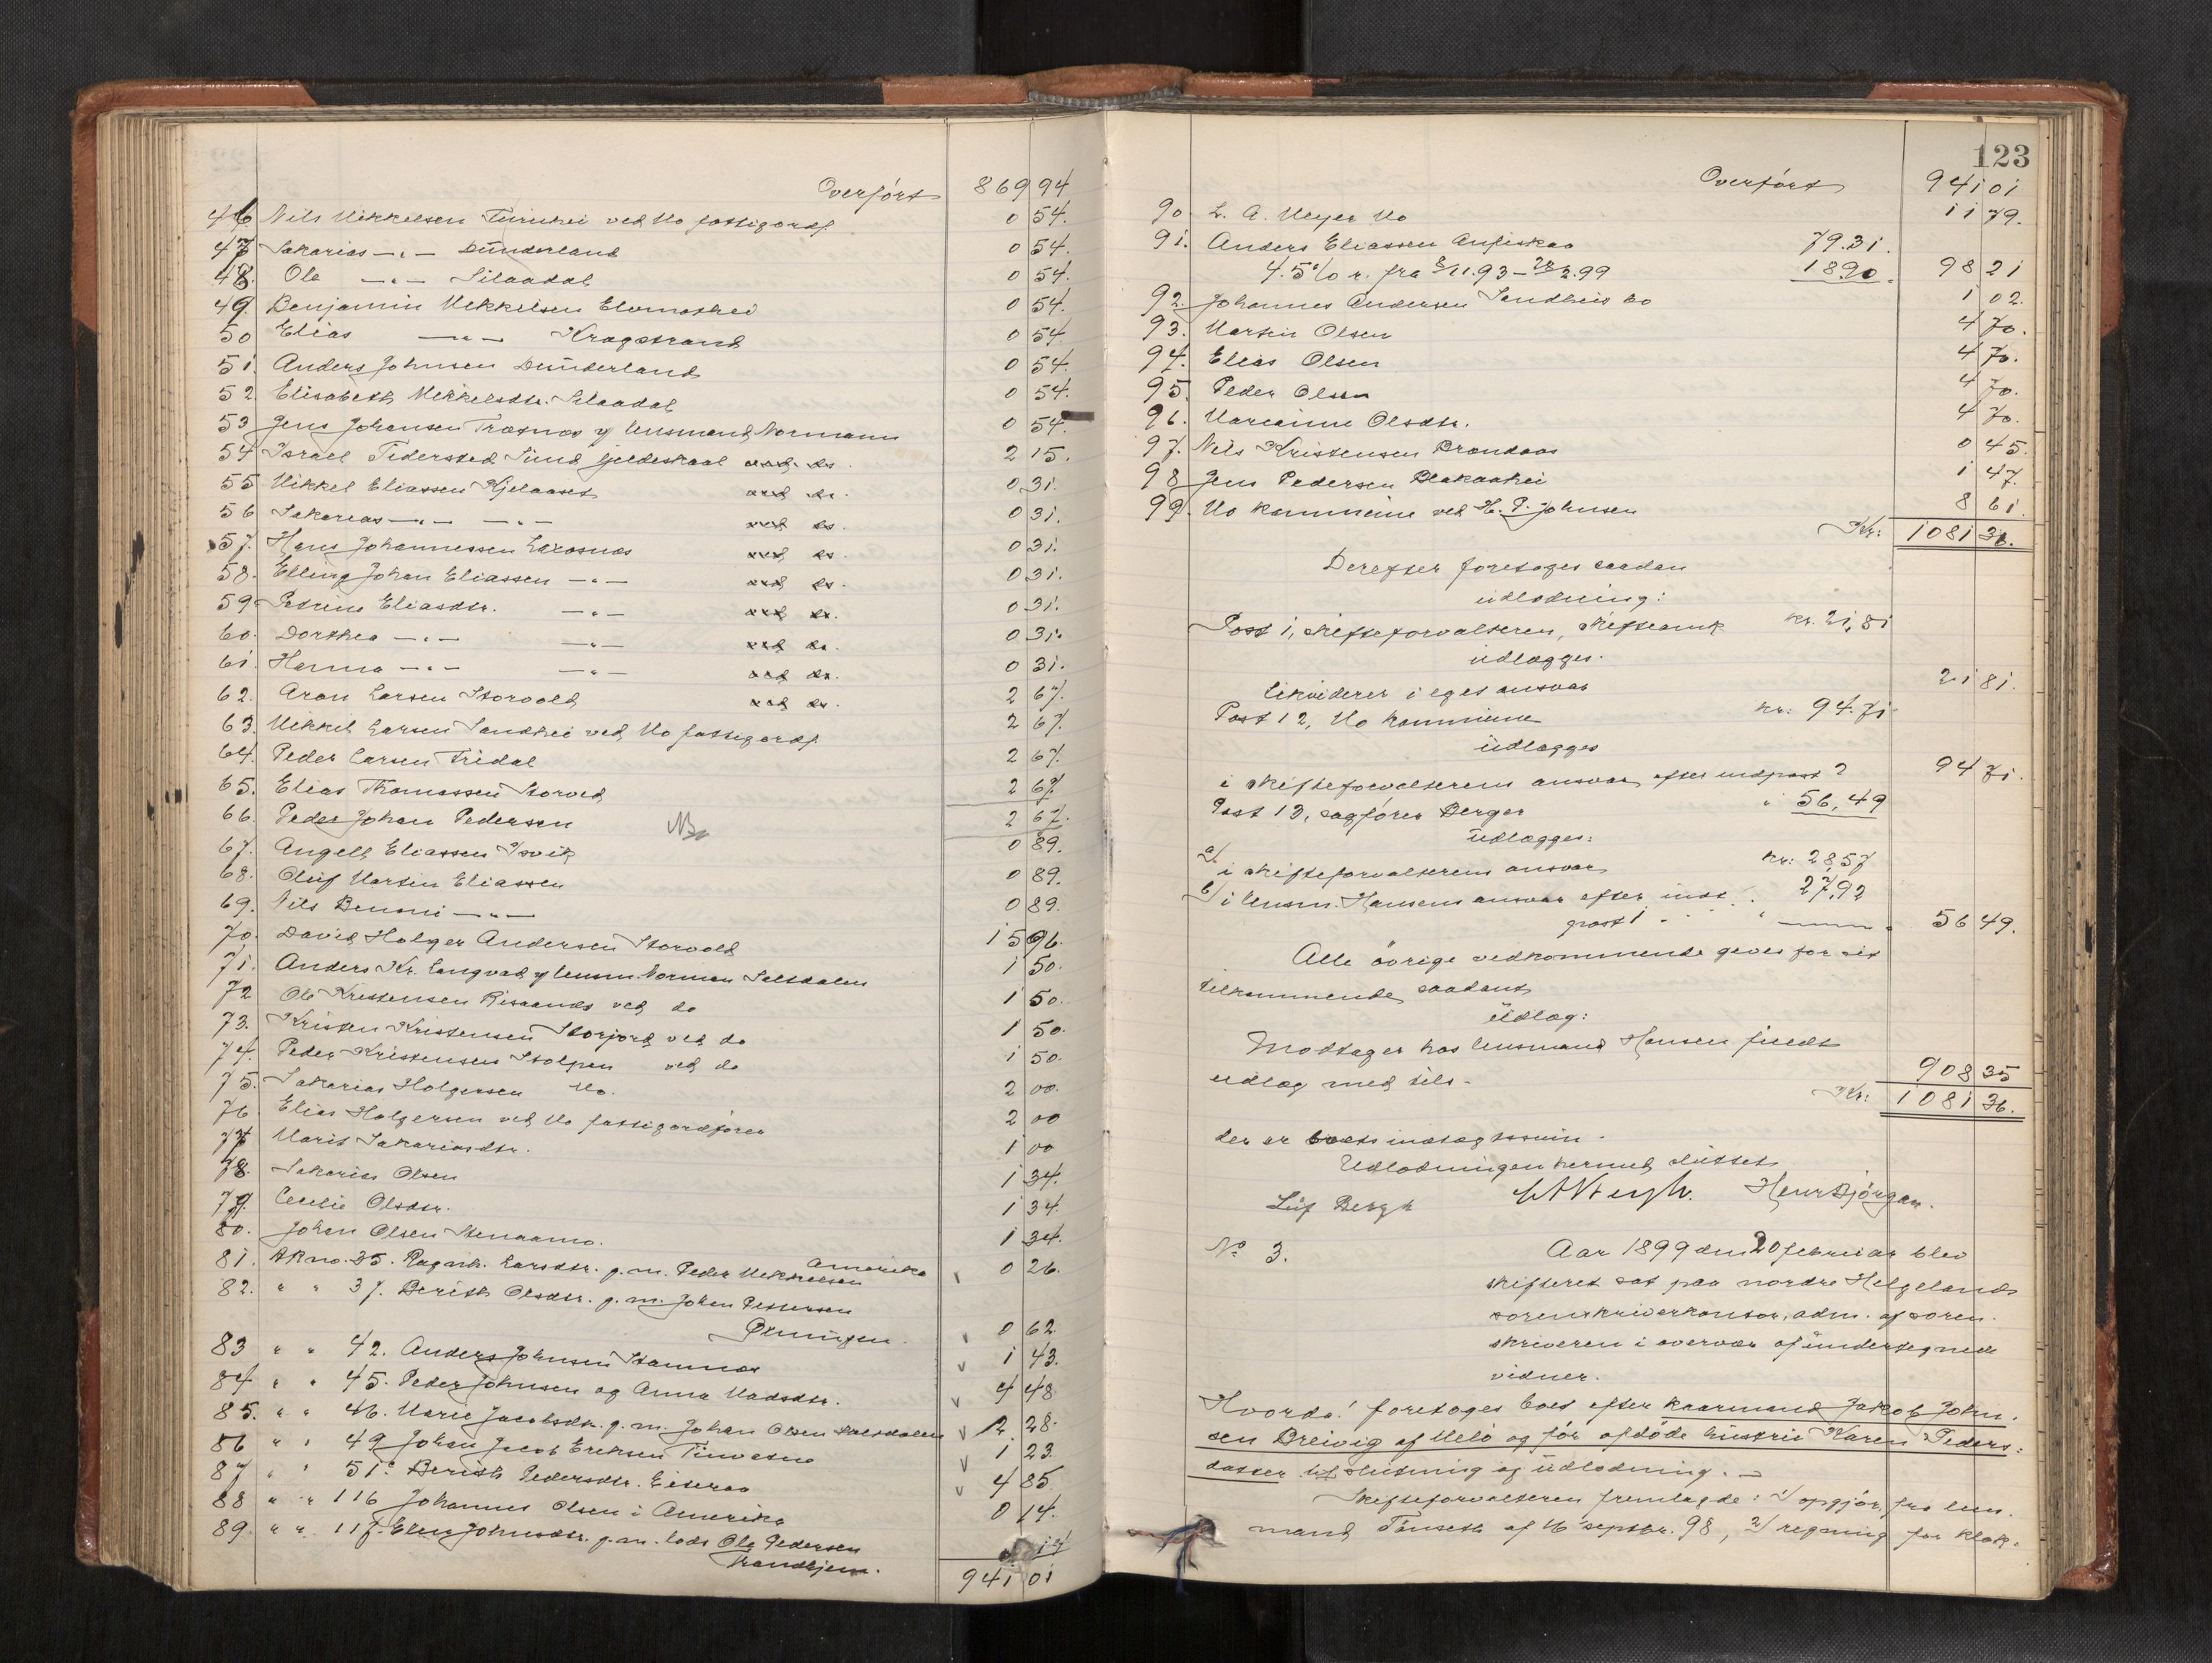 Overført 869 94
46 Nils Mikkelsen ved Mo fattigordf. 0 54.
47 Sakarias —„— Dunderland 0 54.
48. Ole —„— Silaadal 0 54.
49. Benjamin Mikkelsen 0 54.
50 Elias —„— Kragstrand 0 54.
51. Anders Johnsen Dunderland 0 54.
52. Elisabeth Mikkelsdtr. Silaadal 0 54.
53 Jens Johansen Træsnæs v/ lensmand Normann 0 54.
54 Israel Tidersted Sund Gjeldeskaal ved do. 2 15.
55 Mikkel Eliassen Kjelaaset ved do. 0 31.
56 Sakarias —„— —„— ved do. 0 31.
57. Hans Johannessen Laxosnæs ved do. 0 31.
58. Elling Johan Eliassen —„— ved do. 0 31.
59. Petrine Eliasdtr. —„— ved do. 0 31.
60. Dorthea —„— —„— ved do. 0 31.
61. Hanna —„— —„— ved do. 0 31.
62. Aron Larsen Storvold ved do. 2 67.
63. Mikkel Larsen Sandhei ved Mo fattigordf. 2 67.
64. Peder Larsen Fridal 2 67.
65. Elias Thomassen Storved 2 67.
66. Peder Johan Pedersen Mo 2 67.
67. Angell Eliassen 0 89.
68. Oluf Martin Eliassen 0 89.
69. Nils Benoni —„— 0 89.
70. David Holger Andersen Storvold 15 96.
71. Anders Kr. Langvad v/ lensm Norman Saltdalen 1 50.
72 Ole Kristensen Risaanes ved do 1 50.
73. Kristen Kristensen Storjord ved do 1 50.
74. Peder Kristensen Stolpen ved do 1 50.
75. Sakarias Holgersen Mo. 2 00.
76. Elias Holgersen ved Mo fattigordfører 2 00
77. Marit Sakariasdtr. 1 00
78. Sakarias Olsen 1 34.
79. Cecilie Olsdtr. 1 34.
80. Johan Olsen Stenaamo. 1 34.
81. AR no. 35. Ragnh. Larsdtr. g. m. Peder Mikkelsen Amerika 0 26.
82. „ „ 37. Berith Olsdtr. g. m. Johan Pettersen
0 62
83 „ „ 42. Anders Johnsen Stamnæs 1 43.
84 „ „ 45. Peder Johnsen og Anna Madsdtr. 4 48
85. „ „ 46. Marie Jacobsdtr. g. m. Johan Olsen Saltdalen 2. 28.
86 „ „ 49 Johan Jacob Eriksen 1 23
87 „ „ 51. Berith Pedersdtr. Eiteraa 4 85
88 „ „ 116 Johannes Olsen i Amerika 0 14.
89. „ „ 117. Elen Johnsdtr. g. m. lods Ole Pedersen
Trondhjem. 14
941 01
123
Overført 941 01
90 L. A. Meyer Mo 11 79.
91. Anders Eliassen 79.31.
4. 5 % r. fra 8/11.93 – 28/2.99 18.90. 98 21
92. Johannes Andersen Sandheis bo 1 02.
93. Martin Olsen 4 70.
94. Elias Olsen 4 70.
95. Peder Olsen 4 70.
96. Marianne Olsdtr. 4 70.
97. Nils Kristensen Brandaas 0 45.
98 Jens Pedersen Blakaahei 1 47.
99. Mo kommune ved H. P. Johnsen 8 61.
Kr: 1081 36.
Derefter foretoges saadan
udlodning:
Post 1, skifteforvalteren, Skifteomk kr. 21,81
udlægges.
likviderer i eget ansvar 21 81.
Post 12, Mo kommune kr: 94.71
udlægges
i skifteforvalterens ansvar efter indpost 2 94 71.
Post 13, sagfører Berger „ 56,49
udlægges:
a/ i skifteforvalterens ansvar kr: 28,57
b/ i lensm. Hansens ansvar efter indt. 27,92
post 1 - 56 49.
Alle øvrige vedkommende gives for sit
tilkommende saadant
Udlæg:
Modtager hos lensmand Hansen fuldt
udlæg med tils. 908 35
Kr: 1081 36.
der er boets indtægtssum.
Udlodningen hermed sluttet.
Leif Bergh Henr Bjørgan.
No 3.
Aar 1899 den 20 februar blev
skifteret sat paa nordre Helgelands
sorenskriverkontor, adm. af soren-
skriveren i overvær af undertegnede
vidner.
Hvorda! foretoges boet efter kaarmand Jakob John-
sen Breivig af Melø og før afdøde hustru Karen Peders-
datter til slutning og udlodning. —
Skifteforvalteren fremlagde: 1/ opgjør fra lens-
mand Tønseth af 16 septbr. 98, 2/ regning for klok-